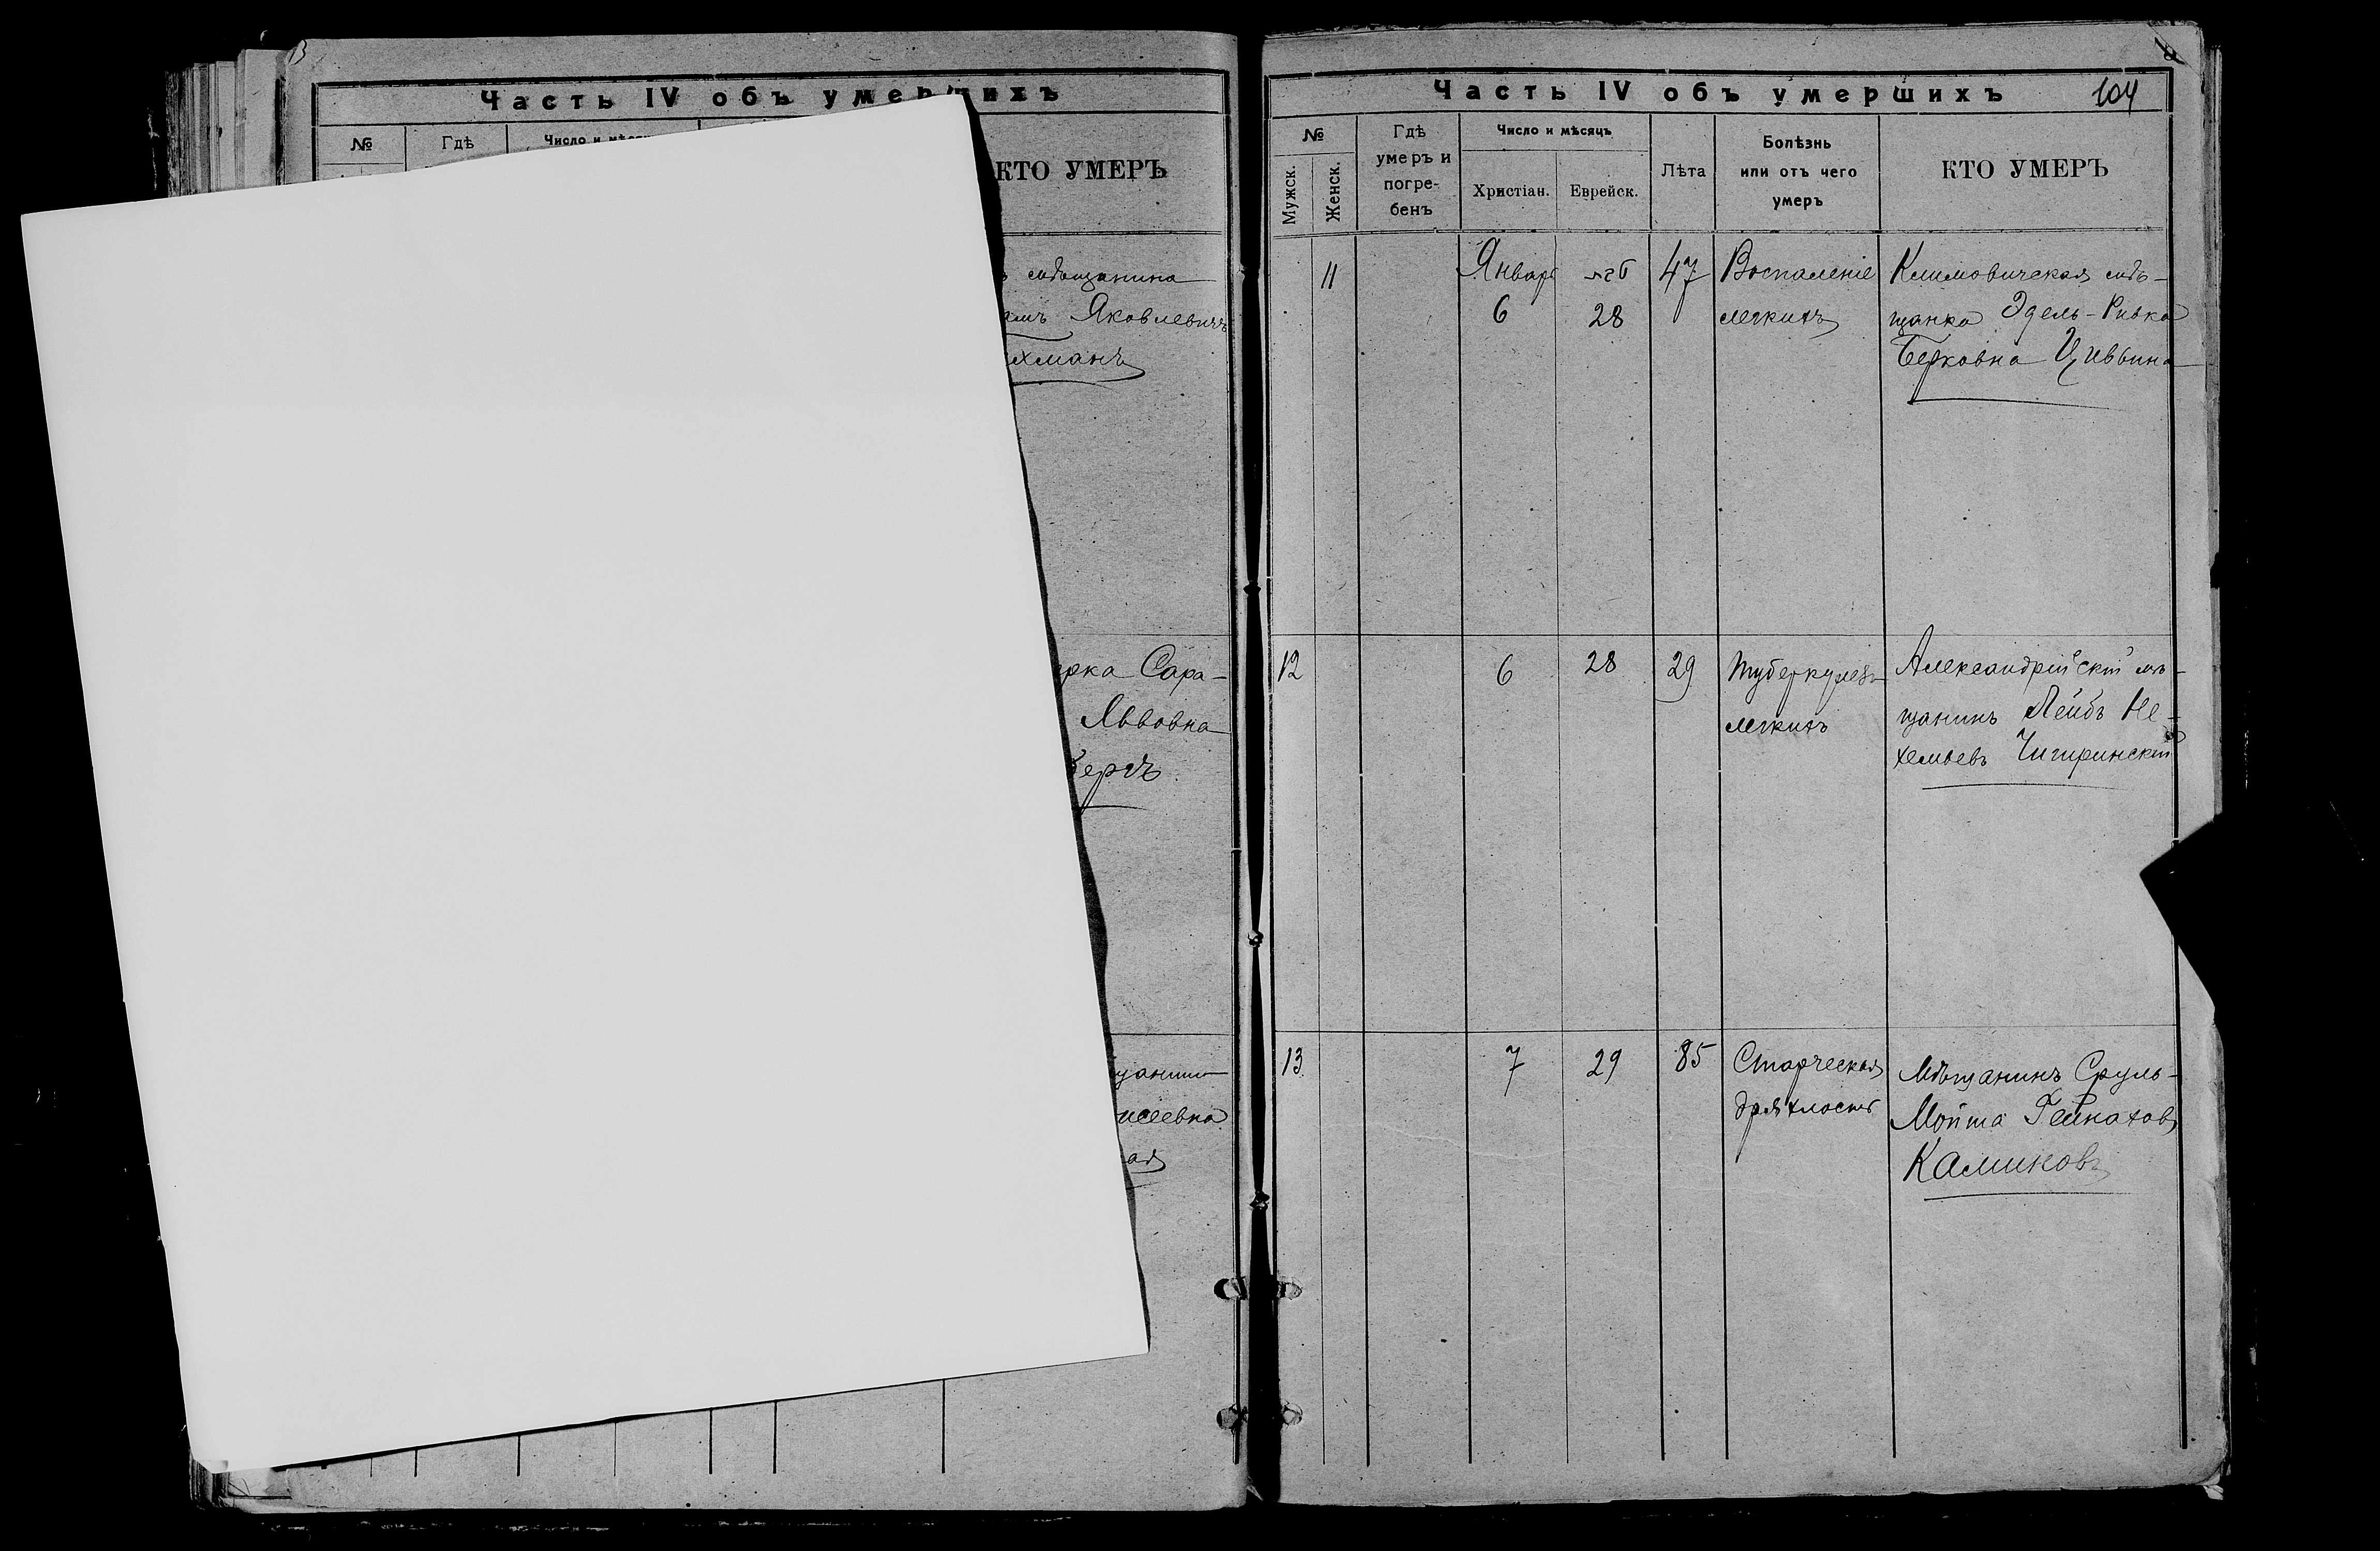 Часть IV объ умершихъ
№
Гдѣ
Число и
КТО УМЕРЪ
мѣщанина
Яковлевичъ
хманъ
рка Сара-
Львовна
бергъ
щанина
исеевна
ая
Часть IV объ умершихъ
104
№
Мужск.
Женск.
Гдѣ
умеръ и
погре-
бенъ
Число и мѣсяцъ
Христіан.
Еврейск.
Лѣта
Болѣзнь
или отъ чего
умеръ
КТО УМЕРЪ
11
Январь
6
28
47
Воспаленіе
легкихъ
Климовичская мѣ-
щанка Эдель-Ривка
Берковна Цивьина
12
6
28
29
Туберкулезъ
легкихъ
Александрійскій мѣ-
щанинъ Лейбъ Не-
хемьевъ Чигиринскій
13
7
29
85
Старческая
дряхлость
Мѣщанинъ Сруль-
Мойша Гейнаховъ
Каминовъ